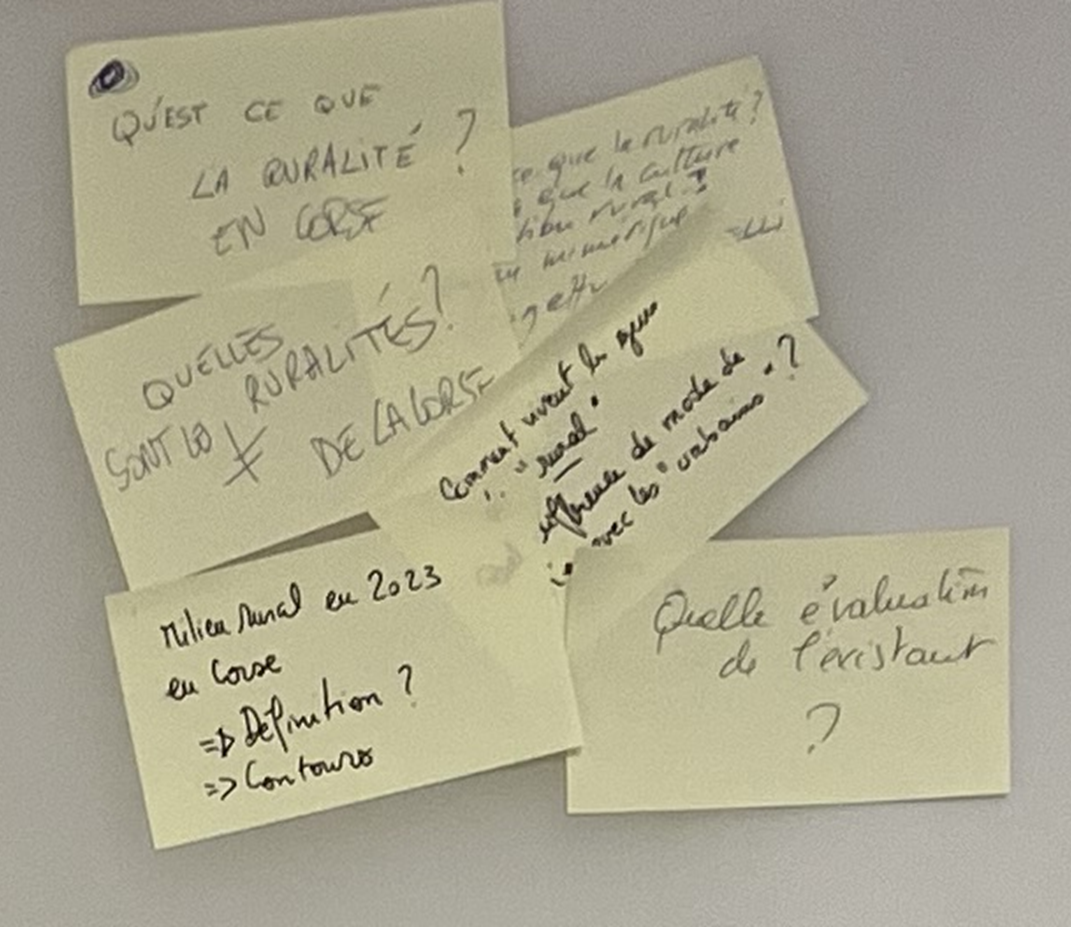 QU'EST CE QUE
LA RURALITÉ ?
EN CORSE
que la ruralité ?
que la culture
rural ?
numérique
QUELLES
RURALITÉS ?
SONT LES ≠
DE LA CORSE
Comment vivent les gens
"rural"
de mode de
avec les "urbains" ?
Milieu rural en 2023
en Corse
=> Définition ?
=> Contours
Quelle évaluation
de l'existant
?